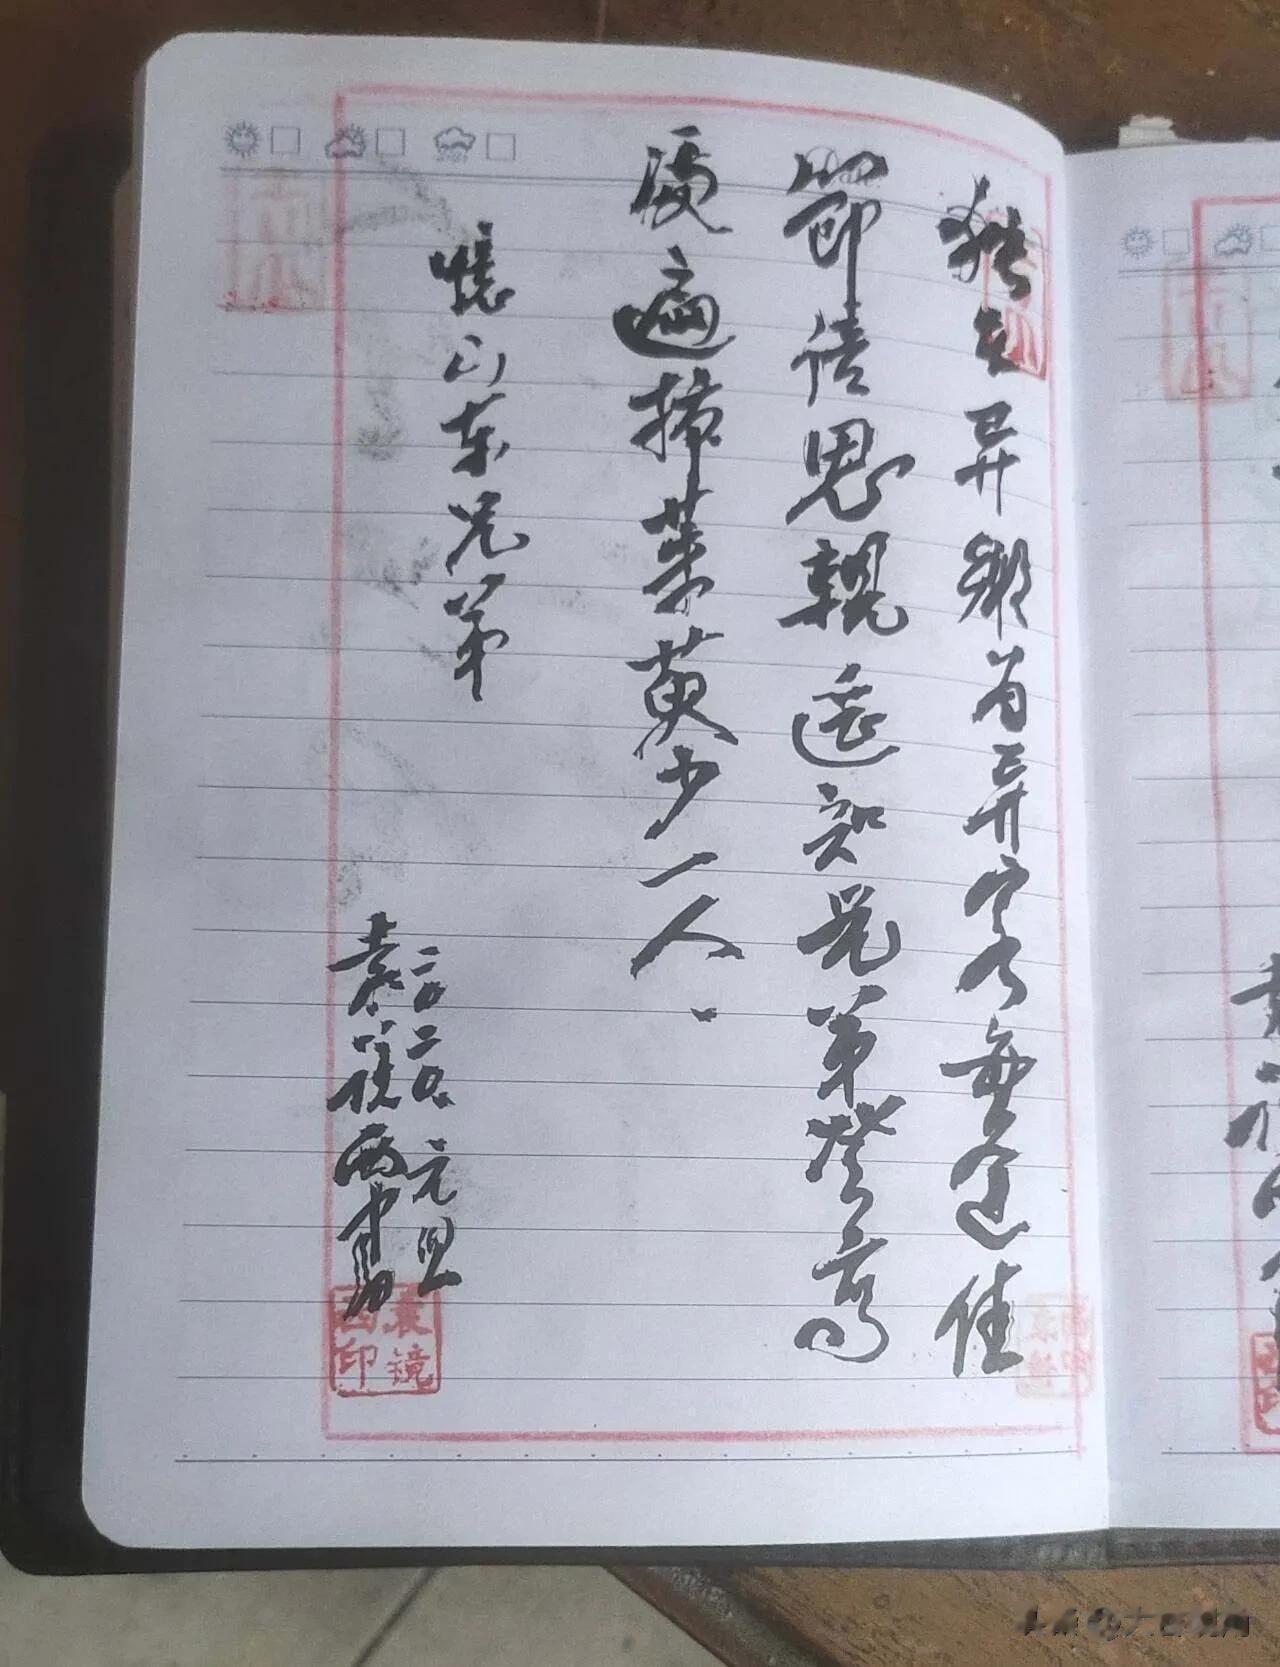 独在异乡为异客每逢佳
节倍思亲遥知兄弟登高
处遍插茱萸少一人
忆山东兄弟
二〇二〇元旦
袁
袁镜
西印